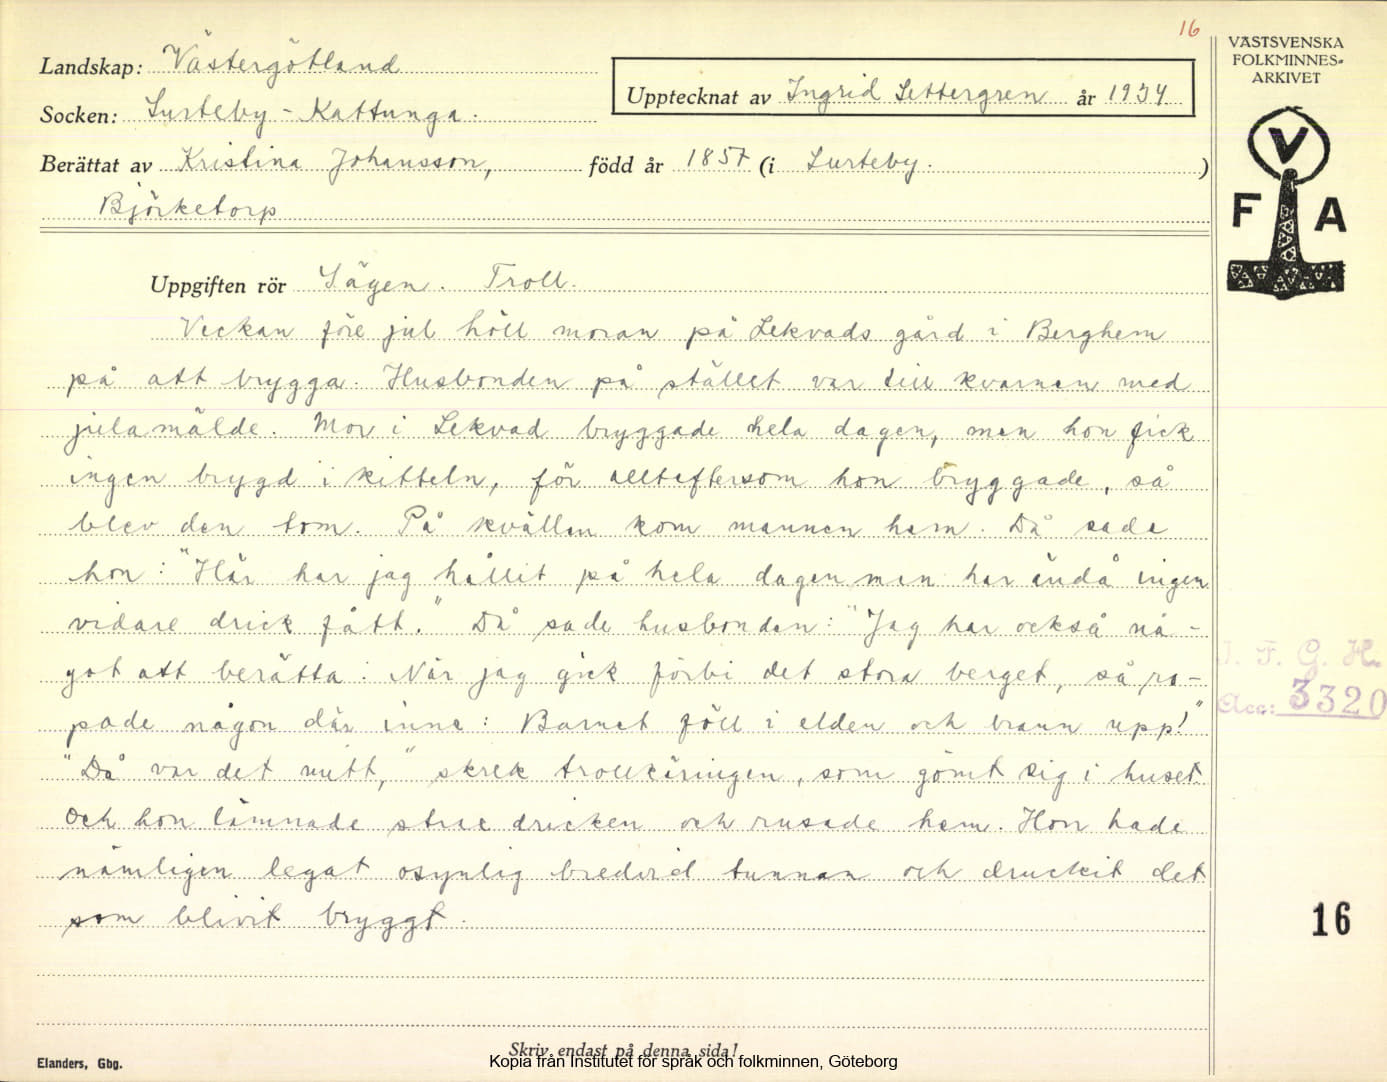 16
Landskap: Västergötland
Socken: Surteby - Kattunga.
Upptecknat av Ingrid Settergren år 1934
Berättat av Kristina Johansson, född år 1857 (i Surteby. )
Björketorp
VÄSTSVENSKA
FOLKMINNES-
ARKIVET
V
F A
Uppgiften rör Sägen. Troll.
Veckan före jul höll moran på Lekvads gård i Berghem
på att brygga. Husbonden på stället var till kvarnen med
julamälde. Mor i Lekvad bryggade hela dagen, men hon fick
ingen brygd i kitteln, för allteftersom hon bryggade, så
blev den tom. På kvällen kom mannen hem. Då sade
hon: "Här har jag hållit på hela dagen men har ändå ingen
vidare drick fått." Då sade husbonden: "Jag har också nå-
got att berätta: När jag gick förbi det stora berget, så ro-
pade någon där inne: Barnet föll i elden och brann upp!"
"Då var det mitt," skrek trollkäringen, som gömt sig i huset
och hon lämnade strax dricken och rusade hem. Hon hade
nämligen legat osynlig bredvid tunnan och druckit det
som blivit bryggt.
I. F. G. H.
Acc: 3320
16
Skriv endast på denna sida!
Elanders, Gbg.
Kopia från Institutet för språk och folkminnen, Göteborg